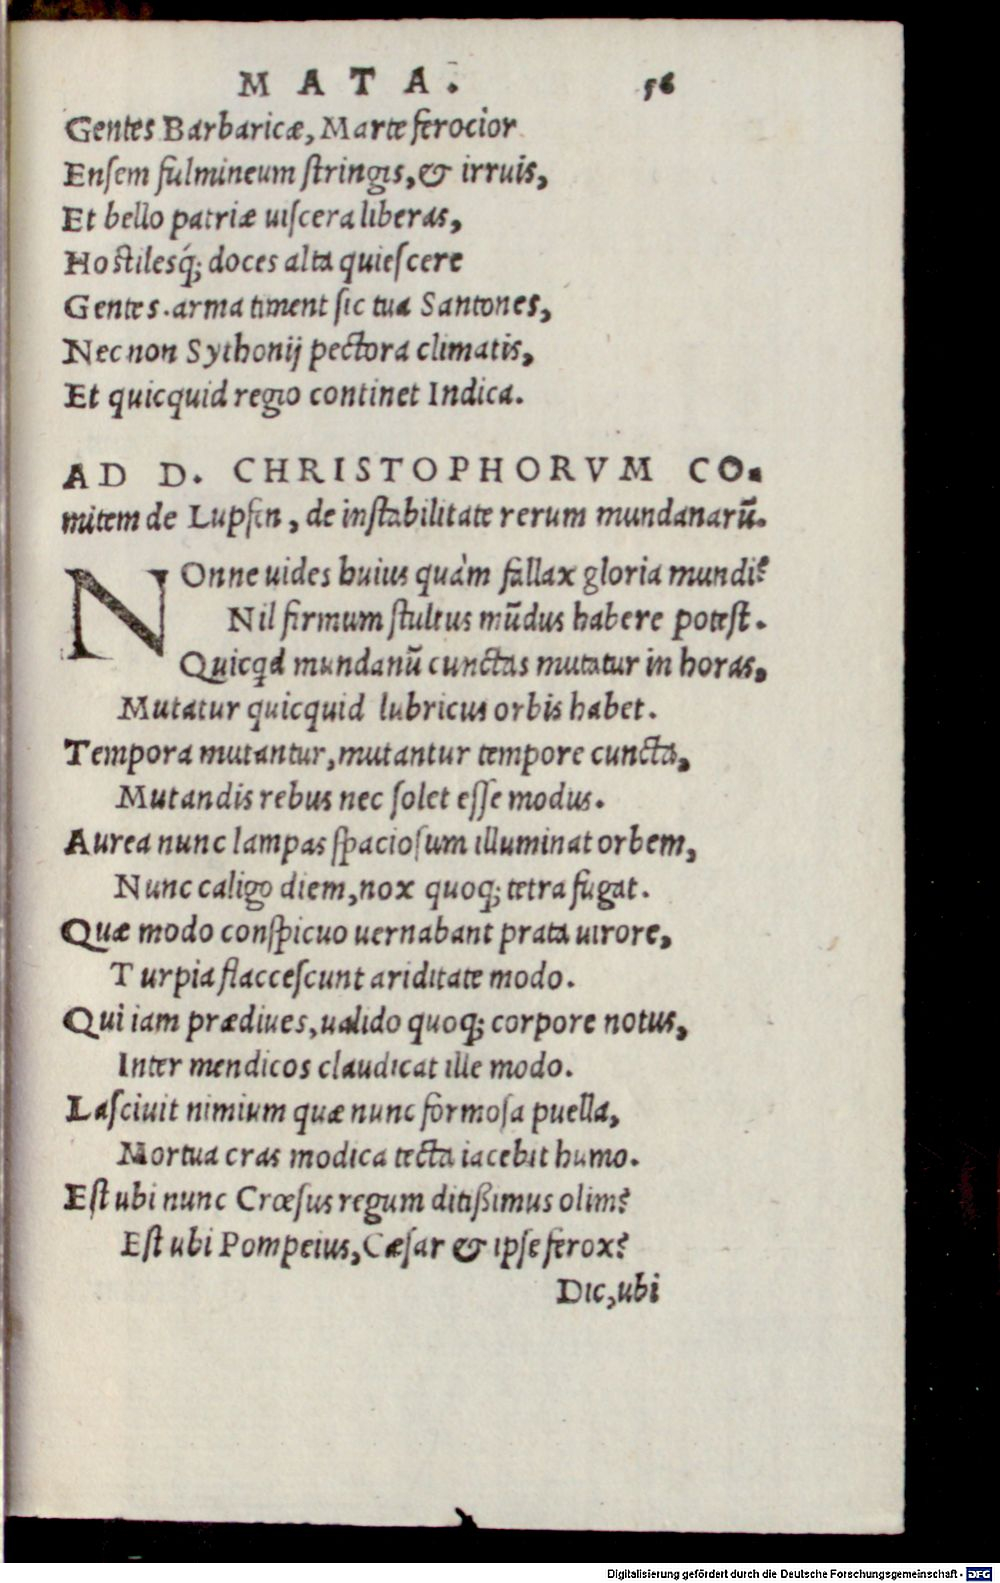 MATA. 56
Gentes Barbaricæ, Marte ferocior
Enſem fulmineum ſtringis, & irruis,
Et bello patriæ uiſcera liberas,
Hoſtilesq́; doces alta quieſcere
Gentes. arma timent ſic tua Santones,
Nec non Sythonij pectora climatis,
Et quicquid regio continet Indica.
AD D. CHRISTOPHORVM CO-
mitem de Lupfen, de inſtabilitate rerum mundanarū.
NOnne uides huius quàm fallax gloria mundi?
Nil firmum ſtultus mūdus habere poteſt.
Quicqd mundanū cunctas mutatur in horas,
Mutatur quicquid lubricus orbis habet.
Tempora mutantur, mutantur tempore cuncta,
Mutandis rebus nec ſolet eſſe modus.
Aurea nunc lampas ſpacioſum illuminat orbem,
Nunc caligo diem, nox quoq; tetra fugat.
Quæ modo conſpicuo uernabant prata uirore,
Turpia flacceſcunt ariditate modo.
Qui iam prædiues, ualido quoq; corpore notus,
Inter mendicos claudicat ille modo.
Laſciuit nimium quæ nunc formoſa puella,
Mortua cras modica tecta iacebit humo.
Eſt ubi nunc Crœſus regum ditißimus olim?
Eſt ubi Pompeius, Cæſar & ipſe ferox?
Dic, ubi
Digitalisierung gefördert durch die Deutsche Forschungsgemeinschaft - DFG